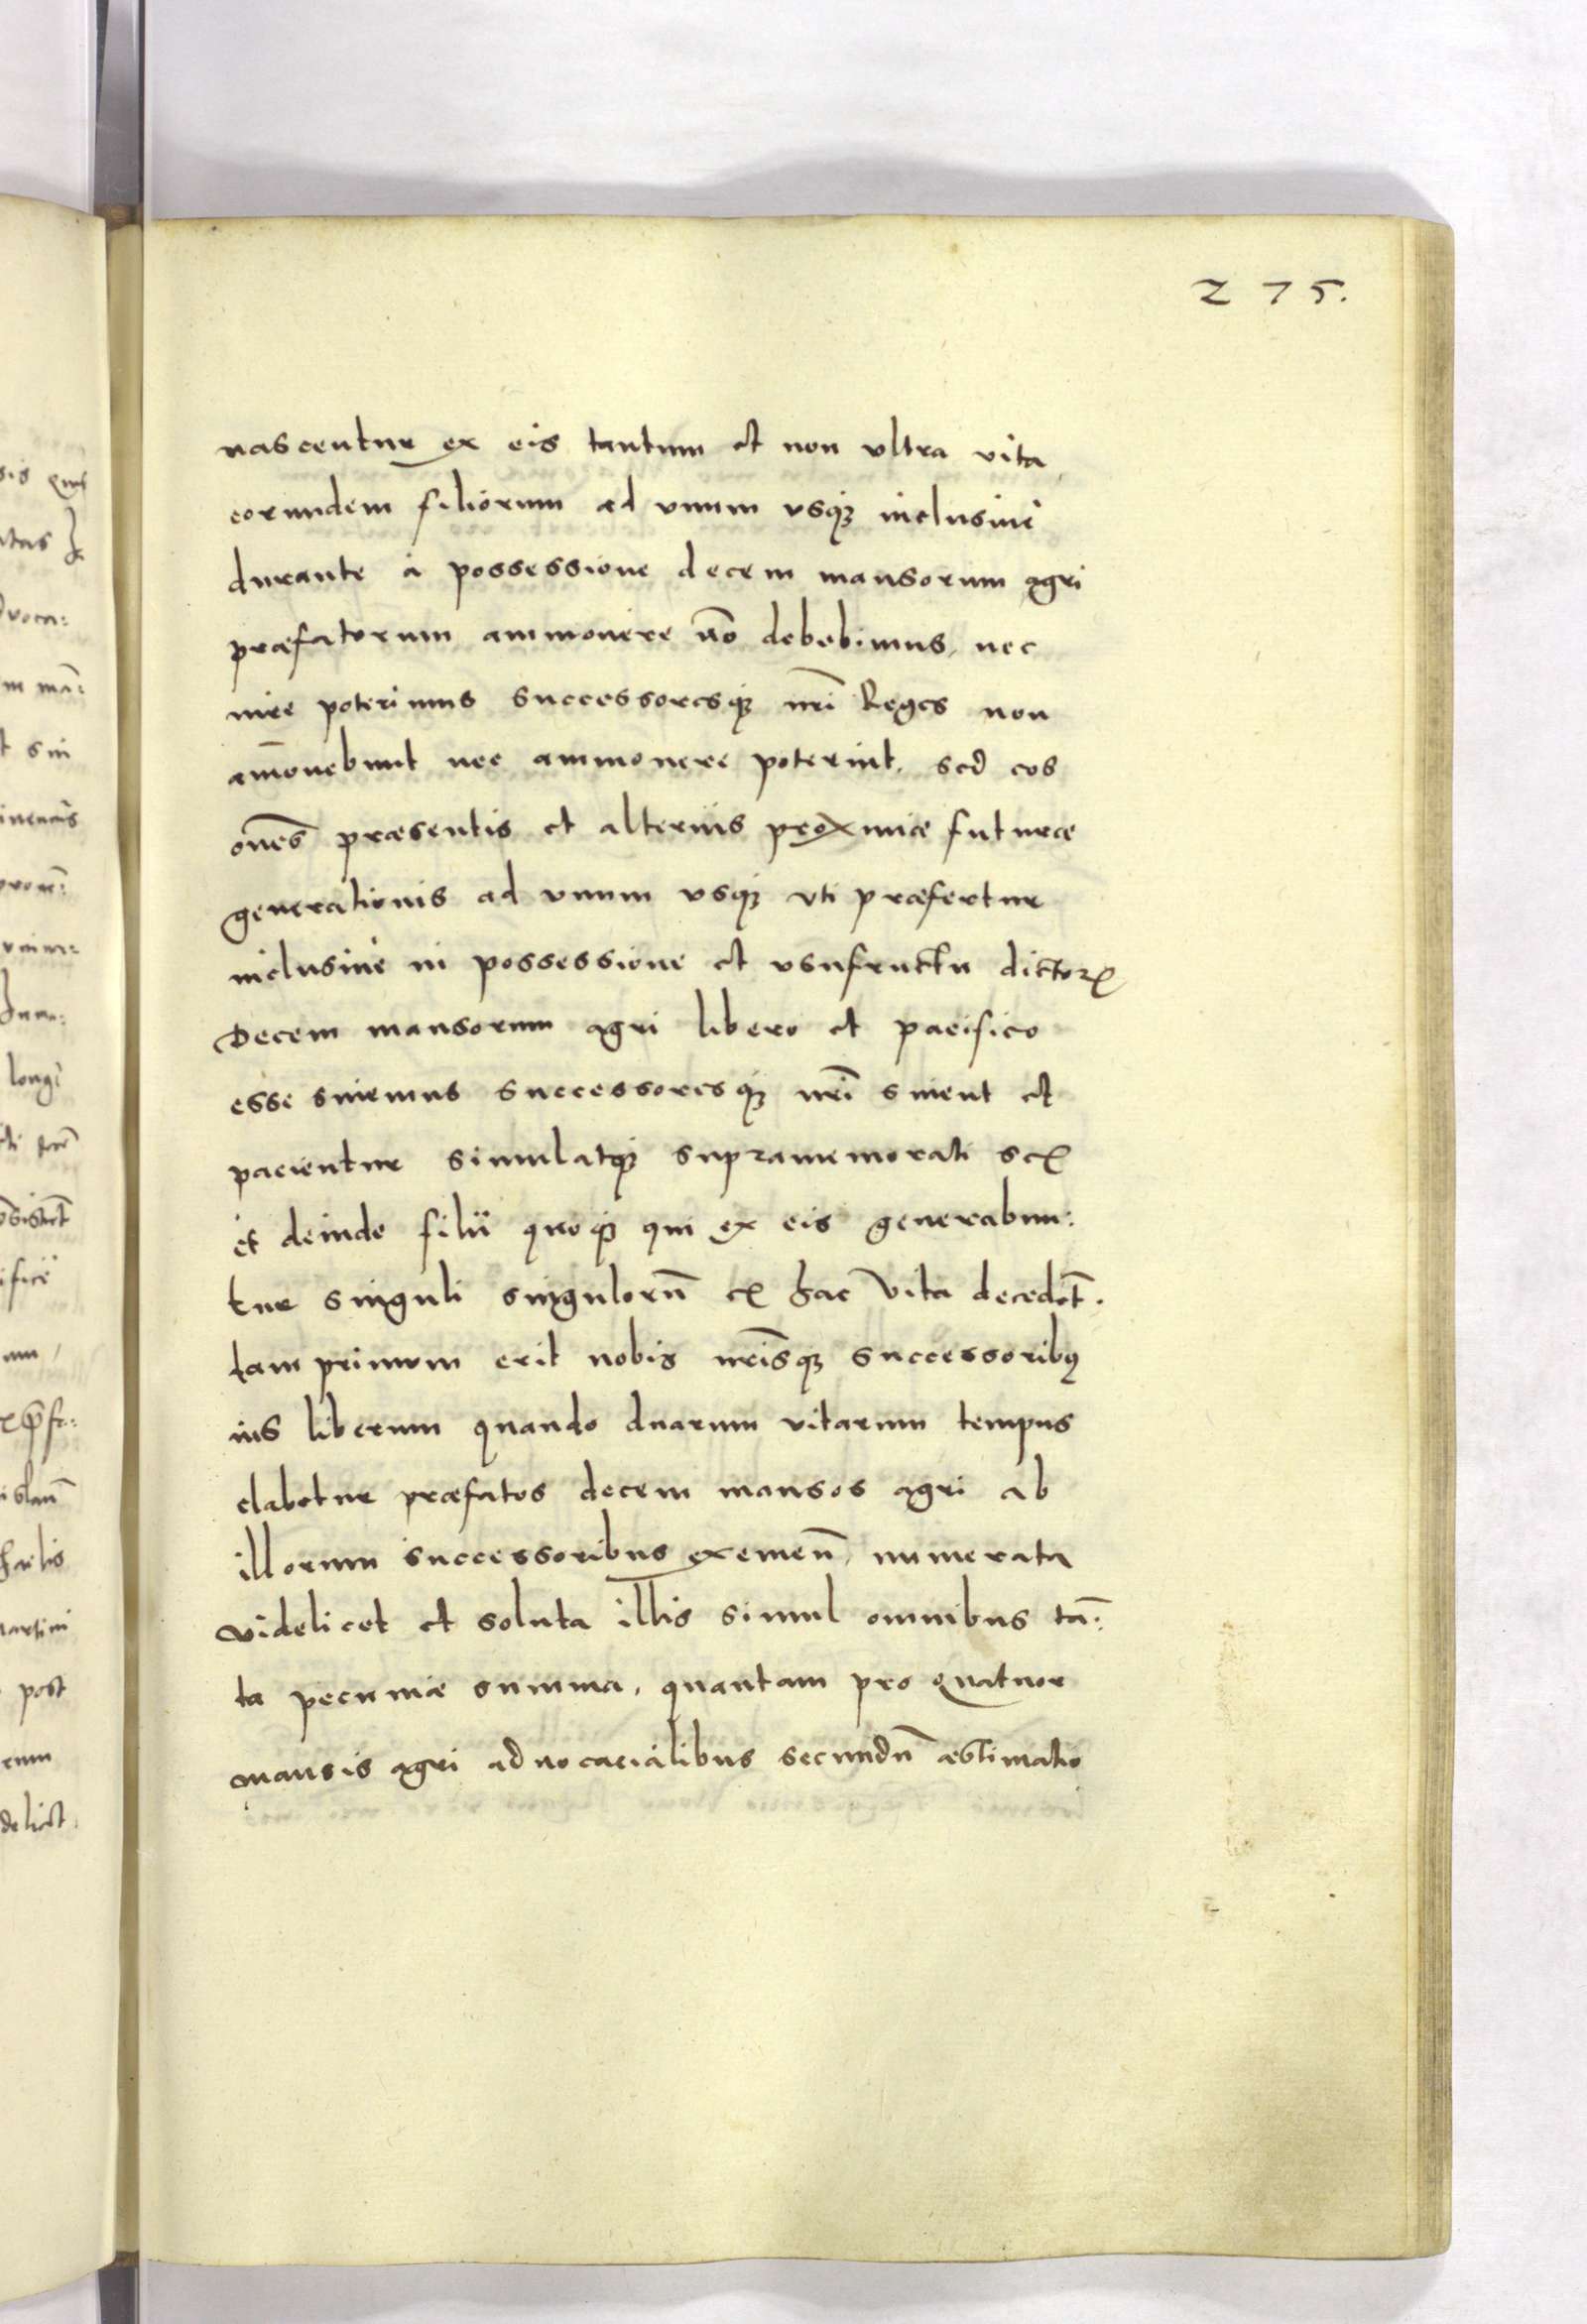 275.
nascentur ex eis tantum et non vltra vita
eorundem filiorum ad vnum vsq₃ inclusiuè
durante à possessione decem mansorum agri
præfatorum ammouere nō debebimus, nec
iure poterimus successoresq₃ nrī Reges non
am̄ouebunt nec ammouere poterint, sed eos
om̄es præsentis et alterius proximæ futuræ
generationis ad vnum vsq₃ vti præfertur
inclusiuè in possessione et vsufructu dictorꝝ
Decem mansorum agri libero et pacifico
esse sinemus successoresq₃ nrī sinent et
pacientur simulatq₃ supramemorati sex
et deinde filii quoq₃ qui ex eis generabun:
tur singuli singulorū ex hac vita decedēt.
tam primum erit nobis nrīsq₃ successoribꝰ
ius liberum quando duarum vitarum tempus
elabetur præfatos decem mansos agri ab
illorum successoribus exemen̄, numerata
videlicet et soluta illis simul omnibus tā:
ta pecuniæ summa, quantam pro quatuor
mansis agri aduocacialibus secundū æstimatio